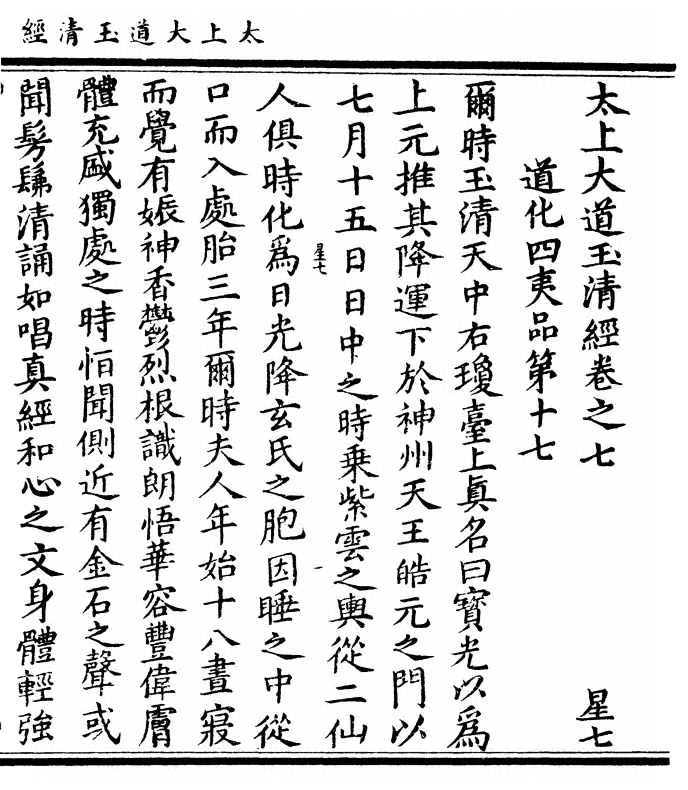 太上大道玉清經
太上大道玉清經卷之七 星七
道化四夷品第十七
爾時玉清天中右瓊臺上眞名曰寶光以爲
上元推其降運下於神州天王皓元之門以
七月十五日日中之時乗紫雲之輿從二仙
星七
人俱時化爲日光降玄氏之胞因睡之中從
口而入處胎三年爾時夫人年始十八晝寢
而覺有娠神香鬱烈根識朗悟華容豐偉膚
體充盛獨處之時恒聞側近有金石之聲或
聞髣髴清誦如唱真經和心之文身體輕強